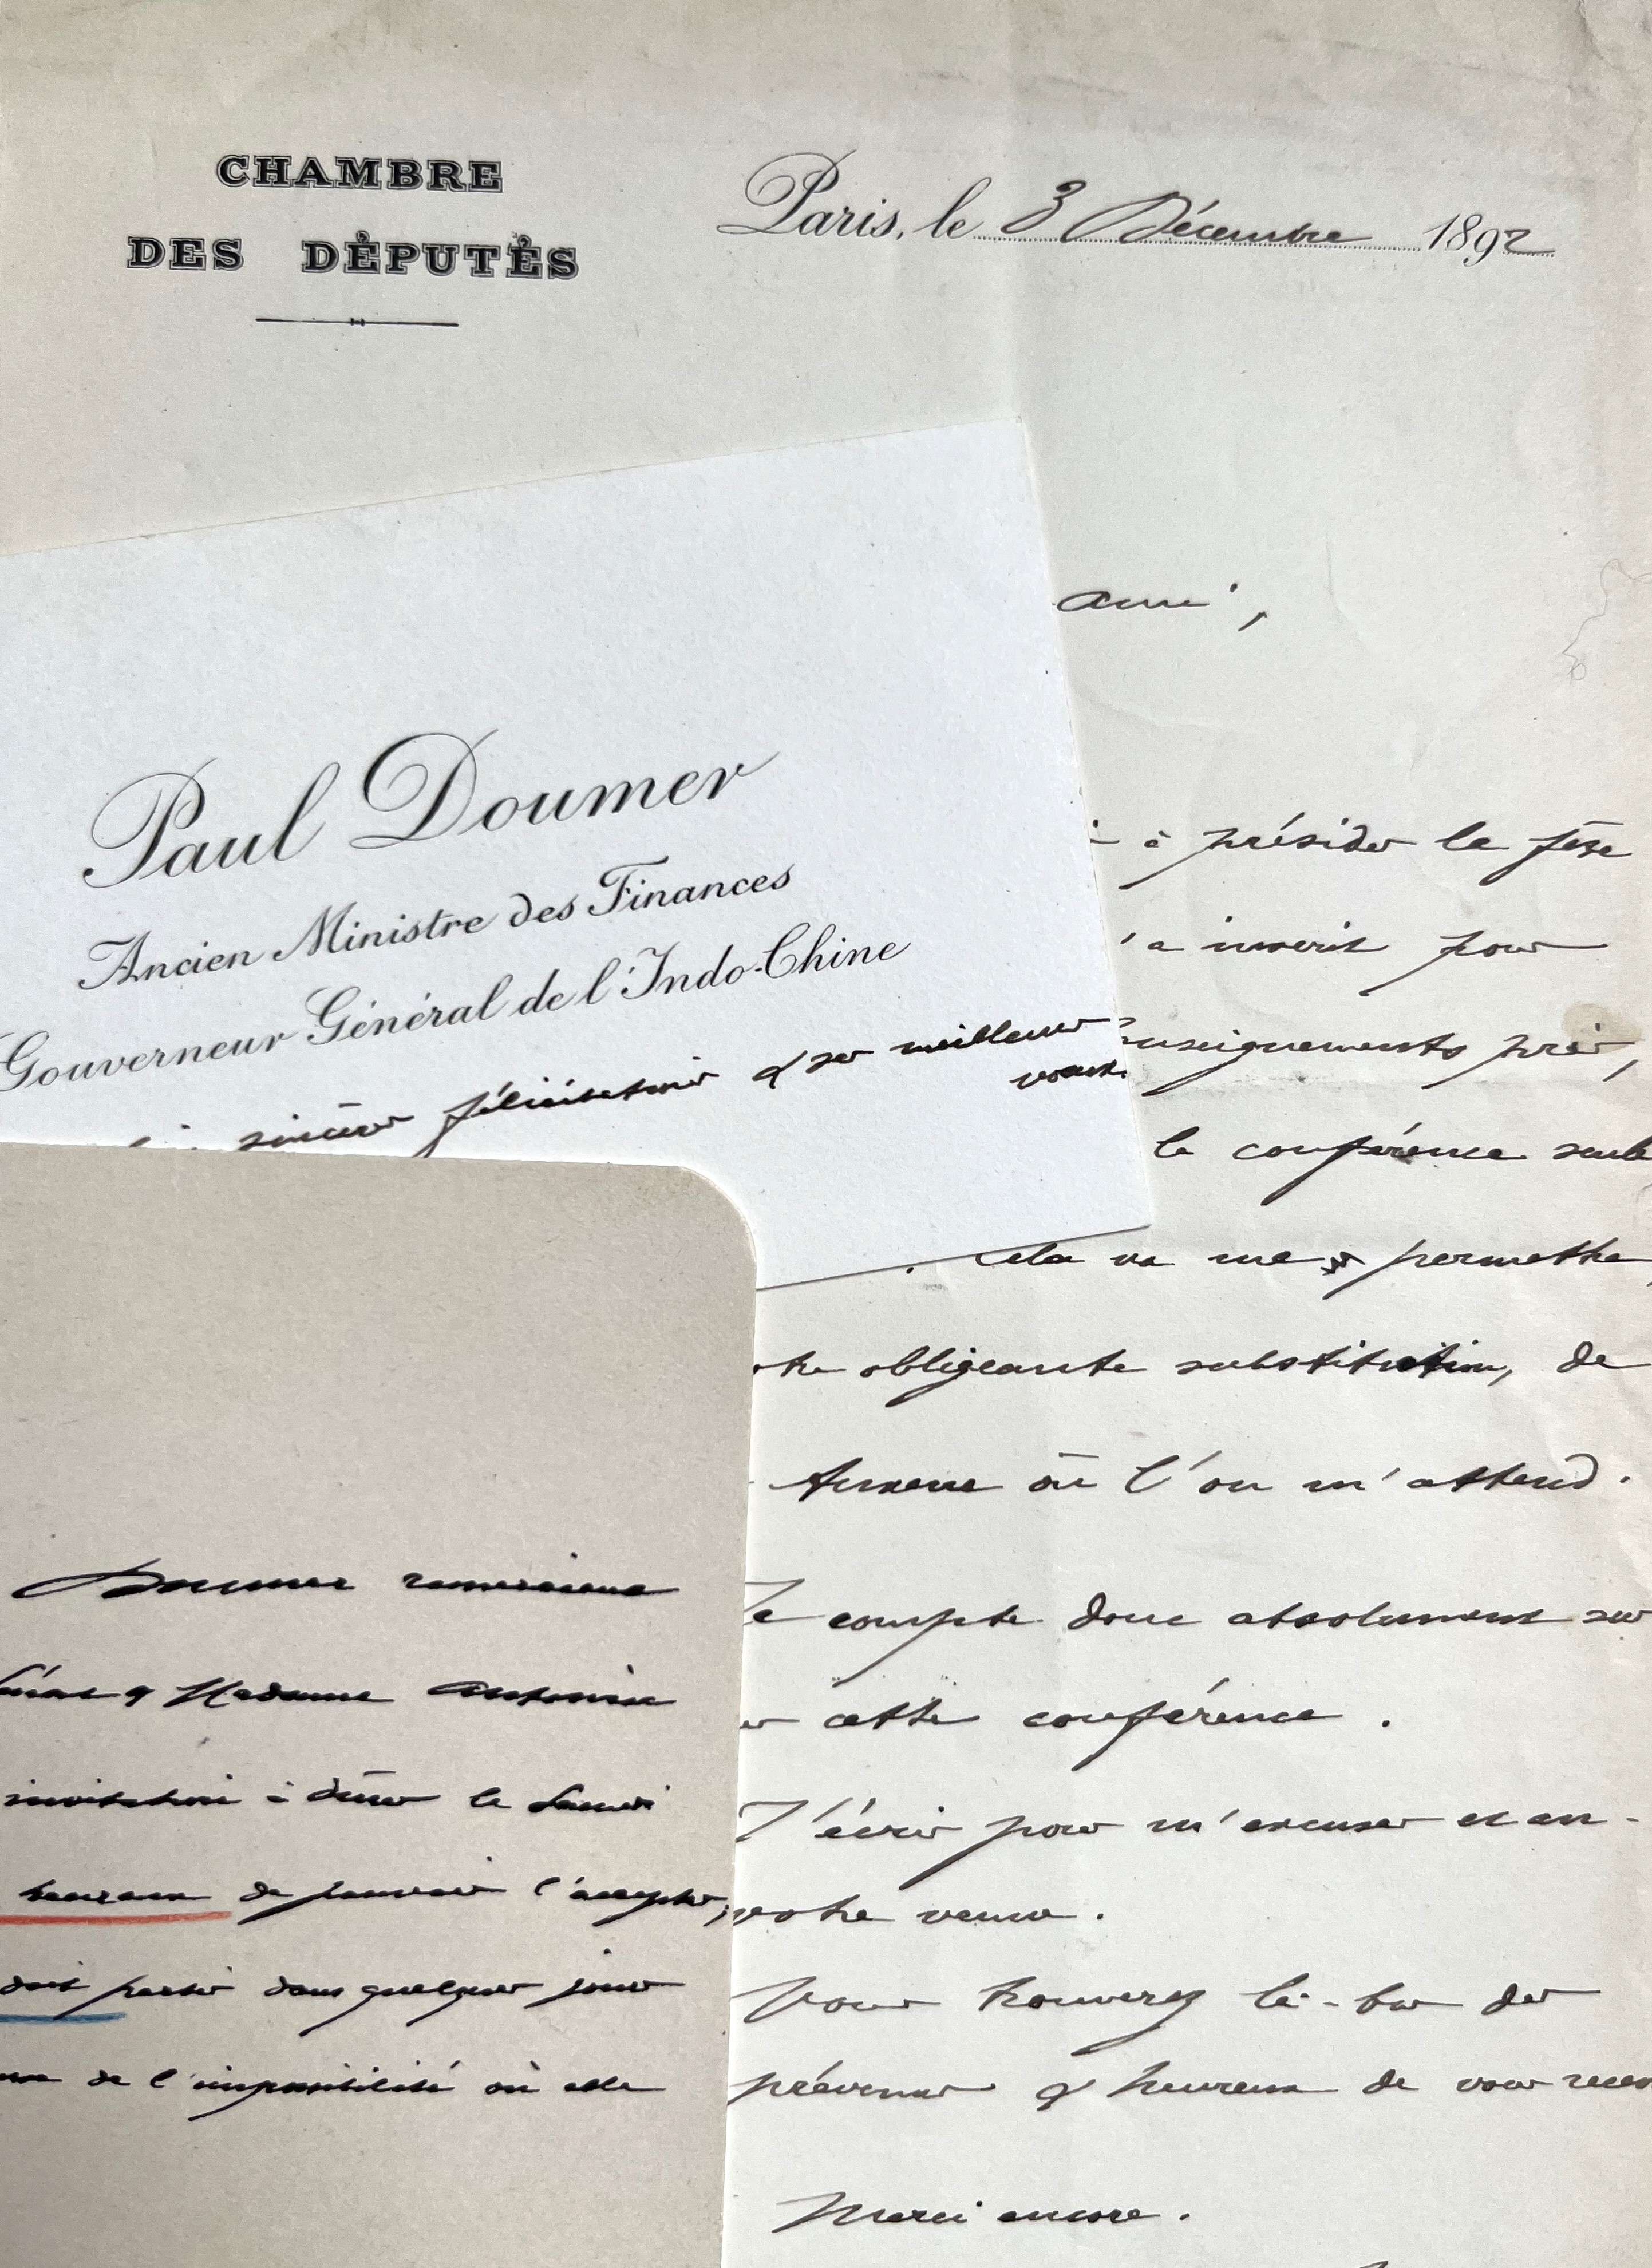 CHAMBRE
DES DÉPUTÉS
Paris, le 3 Décembre 1892
ami,
à présider la fête
a inscrit pour
enseignements pris,
la conférence seule
. Cela va me permettre
obligeante substitution, de
Auxerre où l'on m'attend.
Je compte donc absolument sur
cette conférence.
J'écris pour m'excuser et an-
votre venue.
Vous trouverez là-bas des
prévenus & heureux de vous recev
Merci encore.
Paul Doumer
Ancien Ministre des Finances
Gouverneur Général de l'Indo-Chine
sincères félicitations & ses meilleurs
vœux.
Doumer remercient
& Madame Antonin
invitation à dîner le Samedi
heureux de pouvoir l'accepter,
doit partir dans quelques jours
de l'impossibilité où elle